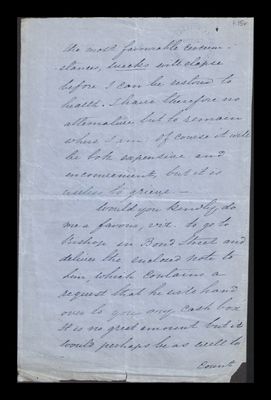 the most favourable circum-
stances, weeks will elapse
before I can be restored to
health. I have therefore no
alternative but to remain
where I am. Of course it will
be both expensive and
inconvenient, but it is
useless to grieve —
Would you kindly do
me a favour, viz. to go to
Bishop in Bond Street and
deliver the enclosed note to
him, which contains a
request that he will hand
over to you my cash box
It is no great amount but it
would perhaps be as well to
Count